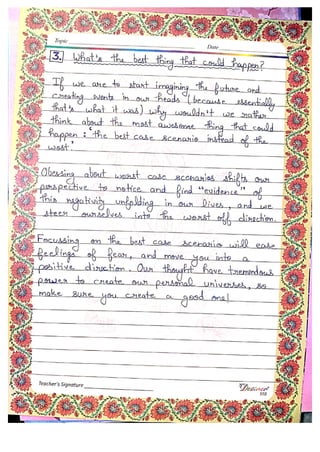 Topic
Date
3. What's the best thing that could happen?
If we are to start imagining the future and
creating events in our heads (because essentially
that's what it was) why wouldn't we rather
think about the most awesome thing that could
happen : 'the best case scenario instead of the
worst.'
Obessing about worst case scenarios shifts our
perspective to notice and find "evidence" of
this negativity unfolding in our lives, and we
steer ourselves into the worst off direction.
Focussing on the best case scenario will ease
feelings of fear, and move you into a
positive direction. Our thought have tremendous
power to create our personal universes, so
make sure you create a good one!
Teacher's Signature